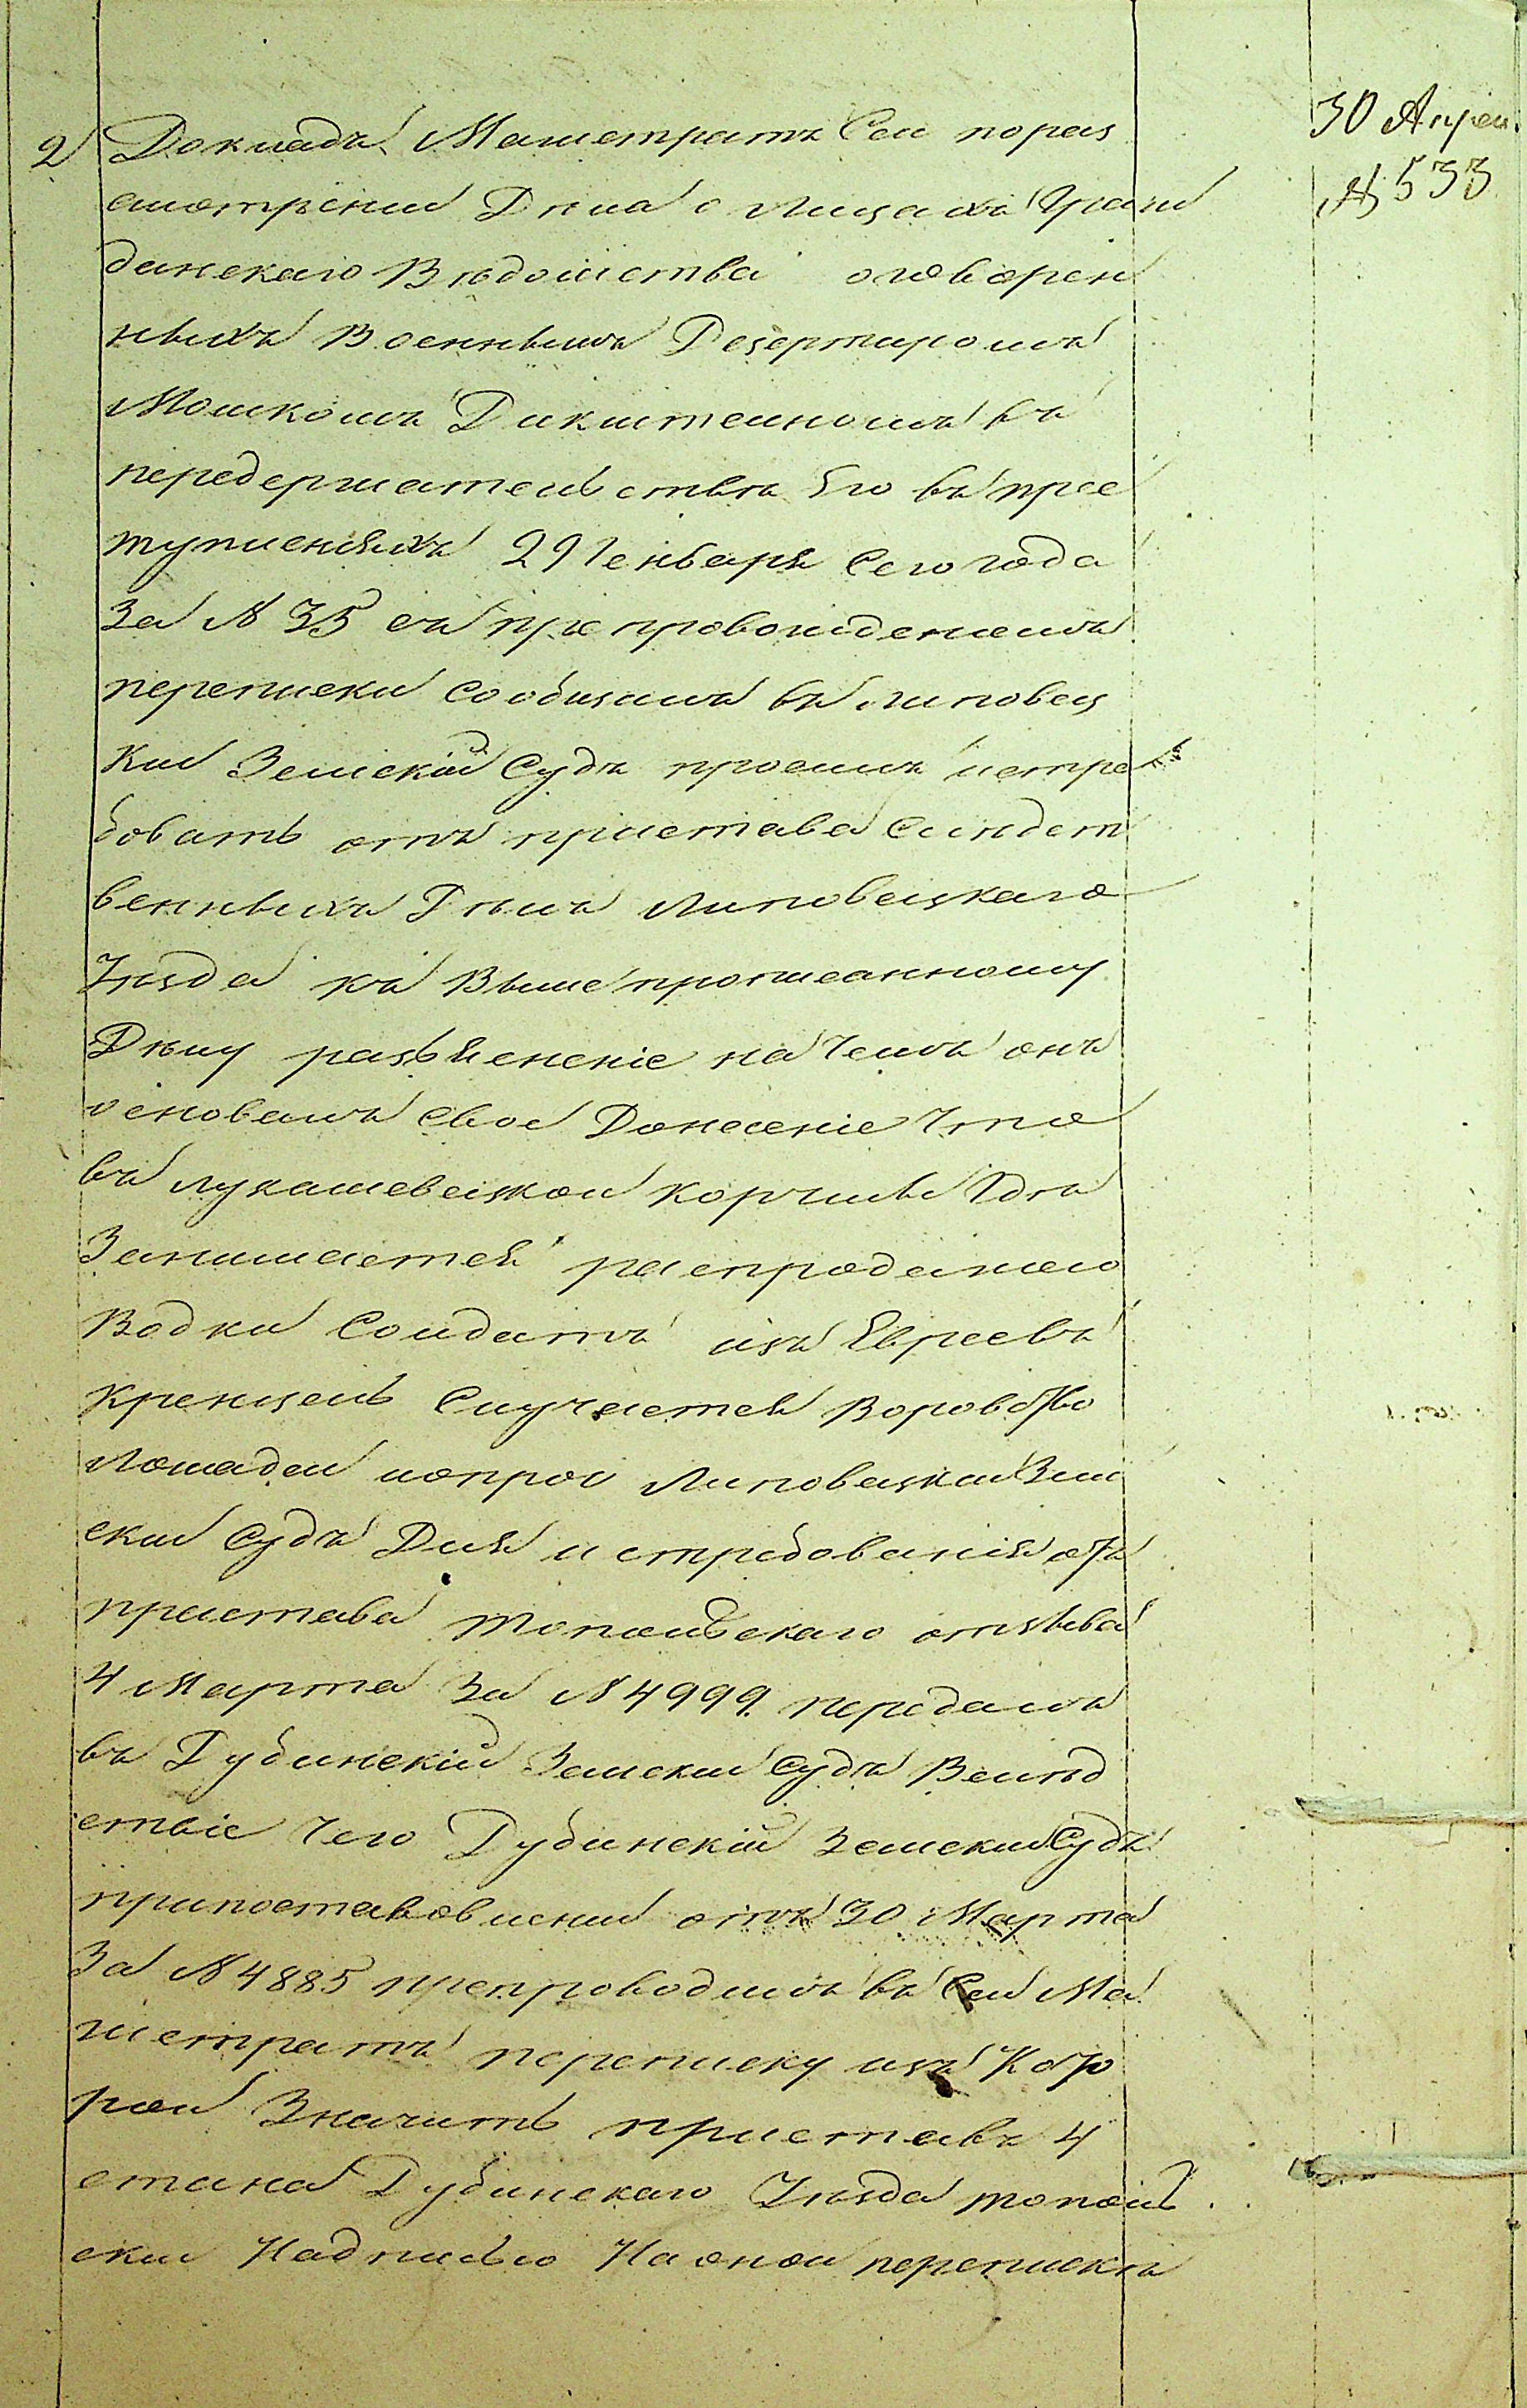 30 Апрел.
№ 533
2 Докладъ. Магистратъ Сей пораз
смотрении Дела о Лицахъ Граж
данскаго Вѣдомства оговорен
ныхъ Военнымъ Дезертиромъ
Мошкомъ Дикштеиномъ въ
передержательствѣ Его въ прес
туплениях 29 Генваря Сего года
За № 35 съ препровождениемъ
переписки Сообщалъ въ Липовец
кии Земскій Судъ просилъ истре
бовать отъ пристава Следст
венныхъ Делъ Липовецкаго
Уѣзда къ Вышепрописанному
Дѣлу разъясненіе на чемъ онъ
основалъ свое Донесеніе Что
въ Лукашевецкой корчмѣ Где
Занимается распродажею
Водки Солдатъ изъ Евреевъ
Кренцель Случается Воровство
Лошадеи Липовецкии Зем
скии Судъ Для истребования отъ
пристава Топольскаго отзыва
4 Марта За № 4999 передалъ
въ Дубинскій Земскии Судъ Вслед
ствіе Чего Дубинскій Земскии Судъ
припостановлении отъ 30 Марта
За № 4885 препроводилъ въ Сей Ма
гистратъ переписку изъ Кото
рой Значитъ приставъ 4
стана Дубинскаго Уѣзда Тополь
скии Надписью На оной переписке